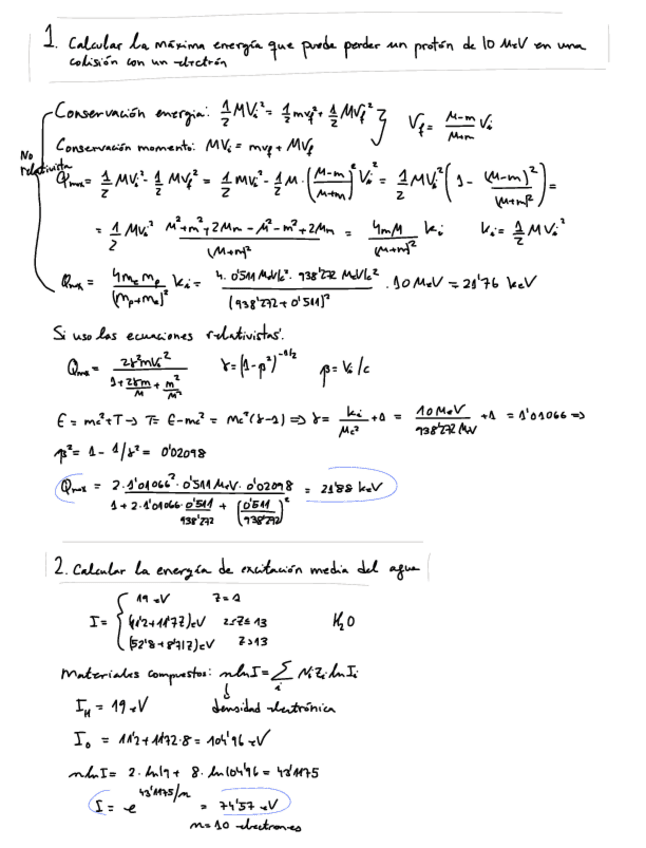 1. Calcular la máxima energía que puede perder un protón de 10 MeV en una
colisión con un electrón
Conservación energía: 1/2 MVi² = 1/2 mvf² + 1/2 MVf² } Vf = (M-m)/(M+m) Vi
Conservación momento: MVi = mvf + MVf
No relativista
Qmax = 1/2 MVi² - 1/2 MVf² = 1/2 MVi² - 1/2 M·((M-m)/(M+m))² Vi² = 1/2 MVi² (1 - (M-m)²/(M+m)²) =
= 1/2 MVi² (M²+m²+2Mm-M²-m²+2Mm)/(M+m)² = 4mM/(M+m)² ki ki = 1/2 MVi²
Qmax = 4me mp/(mp+me)² ki = 4·0'511 MeV/c²·938'272 MeV/c²/(938'272+0'511)² · 10 MeV = 21'76 keV
Si uso las ecuaciones relativistas:
Qmax = 2γ²mVi²/(1+2γm/M+m²/M²) γ = (1-β²)^(-1/2) β = Vi/c
E = mc²+T → T = E-mc² = Mc²(γ-1) ⇒ γ = ki/Mc² + 1 = 10 MeV/938'272 MeV + 1 = 1'01066 ⇒
β² = 1 - 1/γ² = 0'02098
Qmax = 2·1'01066²·0'511 MeV·0'02098/(1+2·1'01066·0'511/938'272+(0'511/938'272)²) = 21'88 keV
2. Calcular la energía de excitación media del agua
I = { 19 eV Z=1
(11'2+11'7Z) eV 2≤Z≤13 H₂O
(52'8+8'71Z) eV Z>13
Materiales compuestos: n ln I = Σi Ni Zi ln Ii
IH = 19 eV densidad electrónica
IO = 11'2+11'72·8 = 104'96 eV
n ln I = 2·ln19 + 8·ln104'96 = 43'1175
I = e^(43'1175/n) = 74'57 eV
n=10 electrones